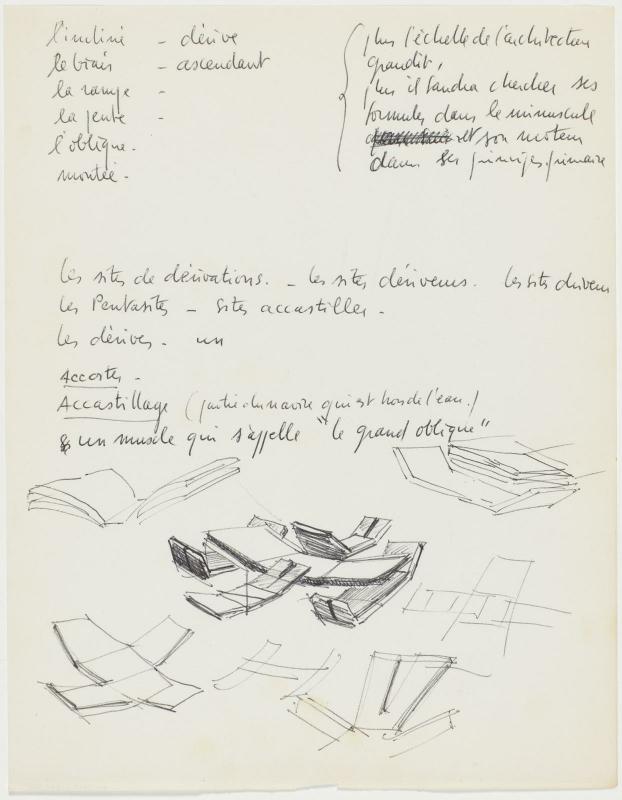 l'incliné - dérive
le biais - ascendant
la rampe -
la pente -
l'oblique -
montée -
plus l'échelle de l'architecture
grandit,
plus il faudra chercher ses
formules dans le minuscule
et son moteur
dans ses principes primaire
les sites de dérivations. - les sites dériveurs. les sites
les Pentasites - sites accastiller -
les dérives - un
Accortes -
Accastillage (partie du navire qui est hors de l'eau.)
un muscle qui s'appelle "le grand oblique"